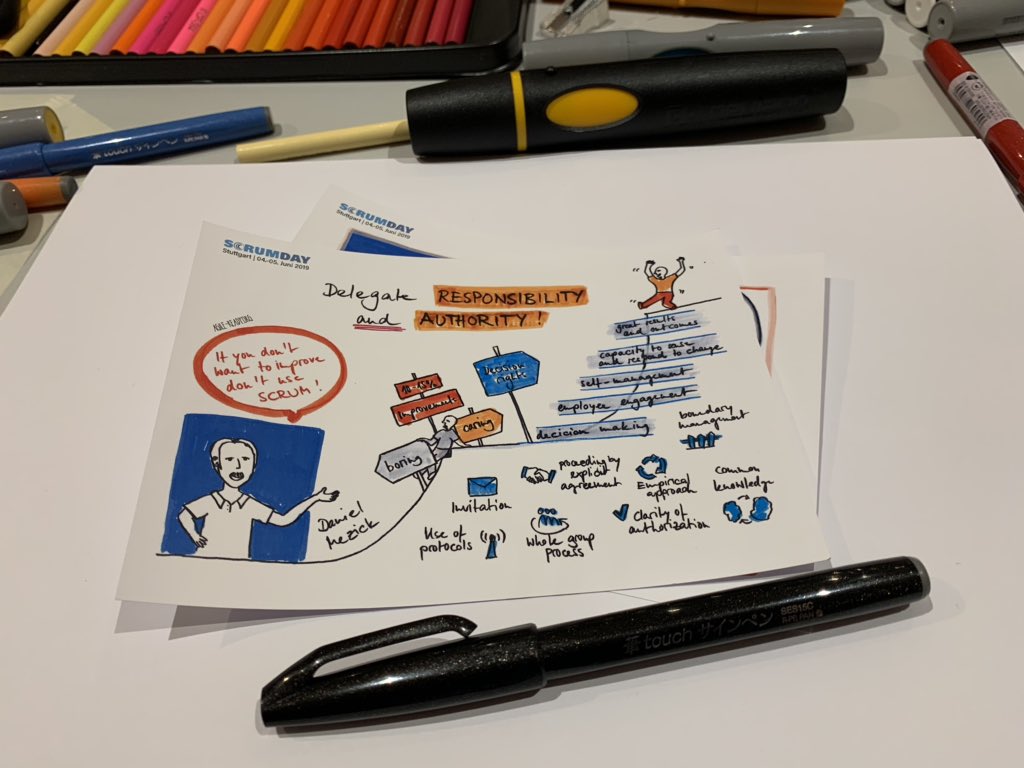 SCRUMDAY
Stuttgart | 04.-05. Juni 2019
SCRUMDAY
Stuttgart | 04.-05. Juni 2019
Delegate RESPONSIBILITY
and AUTHORITY!
If you don't
want to improve
don't use
SCRUM!
Daniel
Mezick
boring
10-15%
improvement
caring
decision
rights
great results
and outcomes
capacity to
and respond to change
self-management
employee engagement
decicion making
boundary
managment
Invitation
proceeding by
explicit
agreement
Empirical
approach
common
knowledge
Use of
protocols
Whole group
process
clarity of
authorization
touch サインペン
SES15C